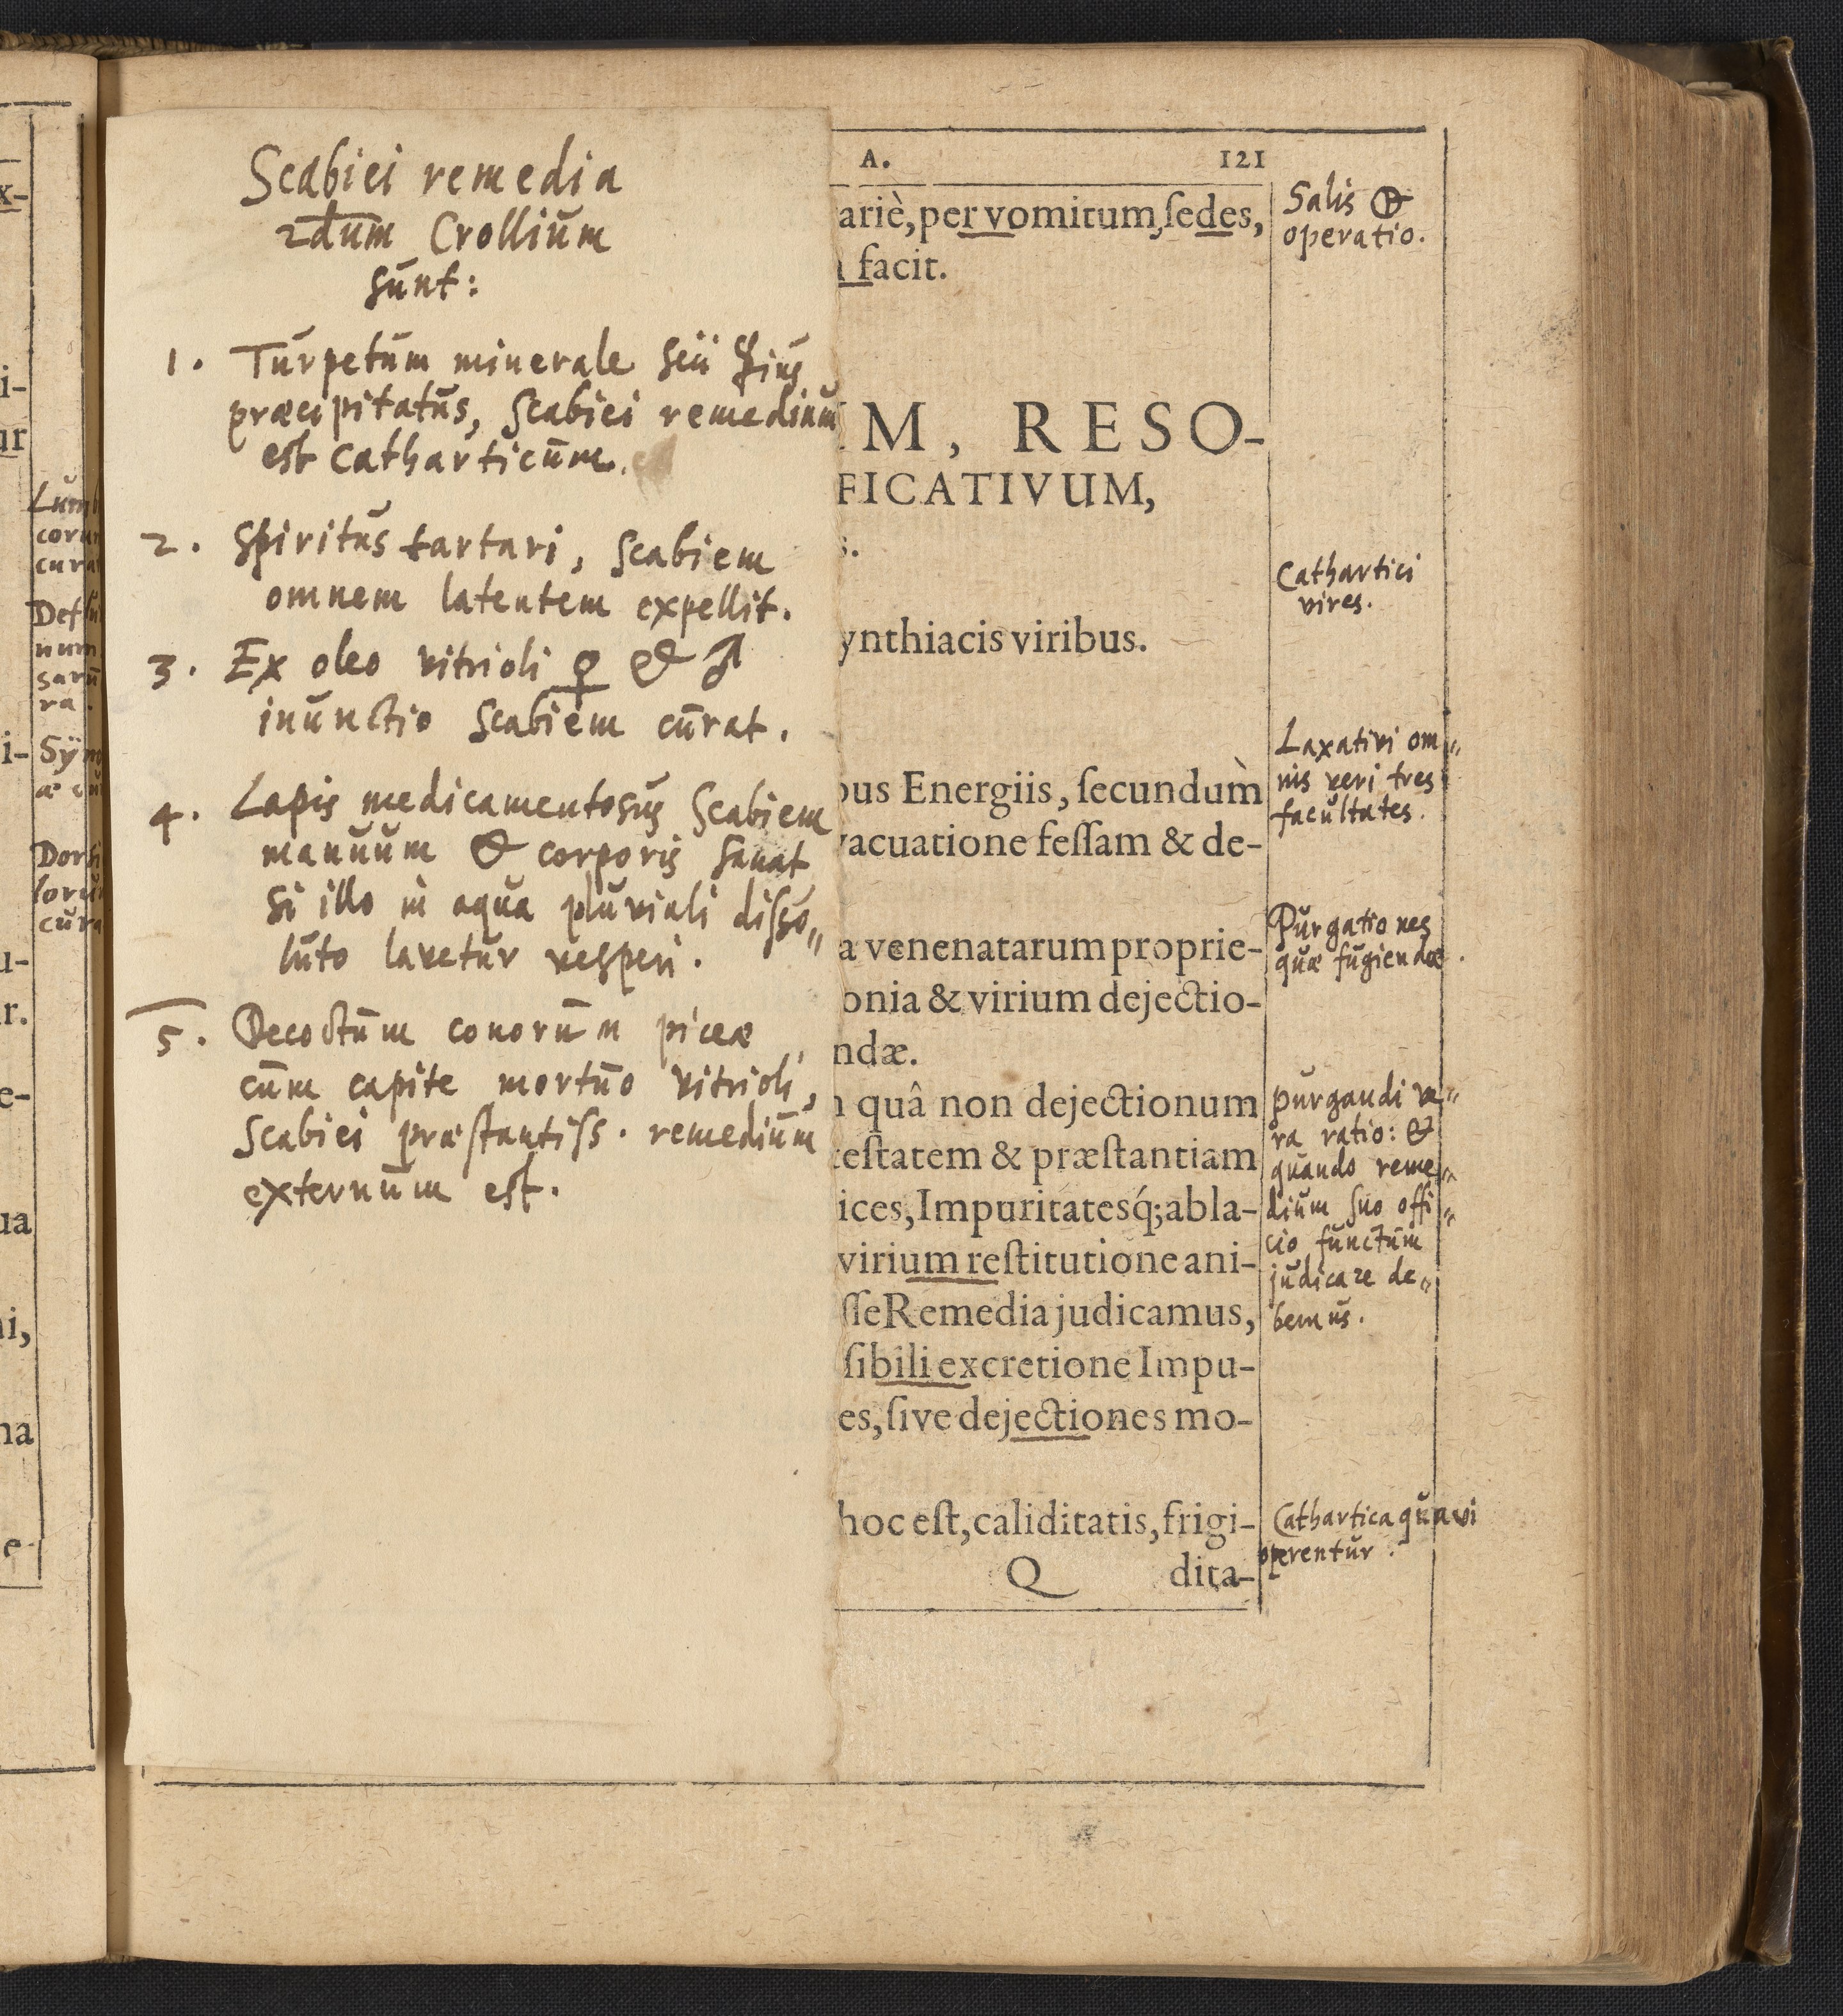 Scabiei remedia
2dum Crollium
sunt:
1. Turpetum minerale seu
præcipitatus, Scabiei remedium
est Catharticum.
2. Spiritus tartari, Scabiem
omnem latentem expellit.
3. Ex oleo vitrioli ♀ & ♂
inunctio Scabiem curat.
4. Lapis medicamentosus Scabiem
manuum & corporis sanat
si illo in aqua pluviali disso〃
luto lavetur vesperi.
5. Decoctum conorum piceæ
cum capite mortuo vitrioli,
Scabiei præstantiss. remedium
externum est.
A. 121
ariè, per vomitum, ſedes,
facit.
M, RESO-
FICATIVUM,
s.
ynthiacis viribus.
bus Energiis, ſecundum
vacuatione feſſam & de-
a venenatarum proprie-
onia & virium dejectio-
ndæ.
quâ non dejectionum
teſtatem & præſtantiam
ices, Impuritatesq́; abla-
virium reſtitutione ani-
ſſe Remedia judicamus,
ſibili excretione Impu-
es, ſive dejectiones mo-
hoc eſt, caliditatis, frigi-
Q dita-
Salis
operatio.
Cathartici
vires.
Laxativi om〃
nis veri tres
facultates.
Purgationes
quæ fugiendæ.
purgandi ve〃
ra ratio: &
quando reme〃
dium suo offi〃
cio functum
judicare de〃
bemus.
Cathartica qua vi
operentur.
x-
i-
ur
i-
u-
r.
e-
ua
ni,
na
e-
cura
ra.